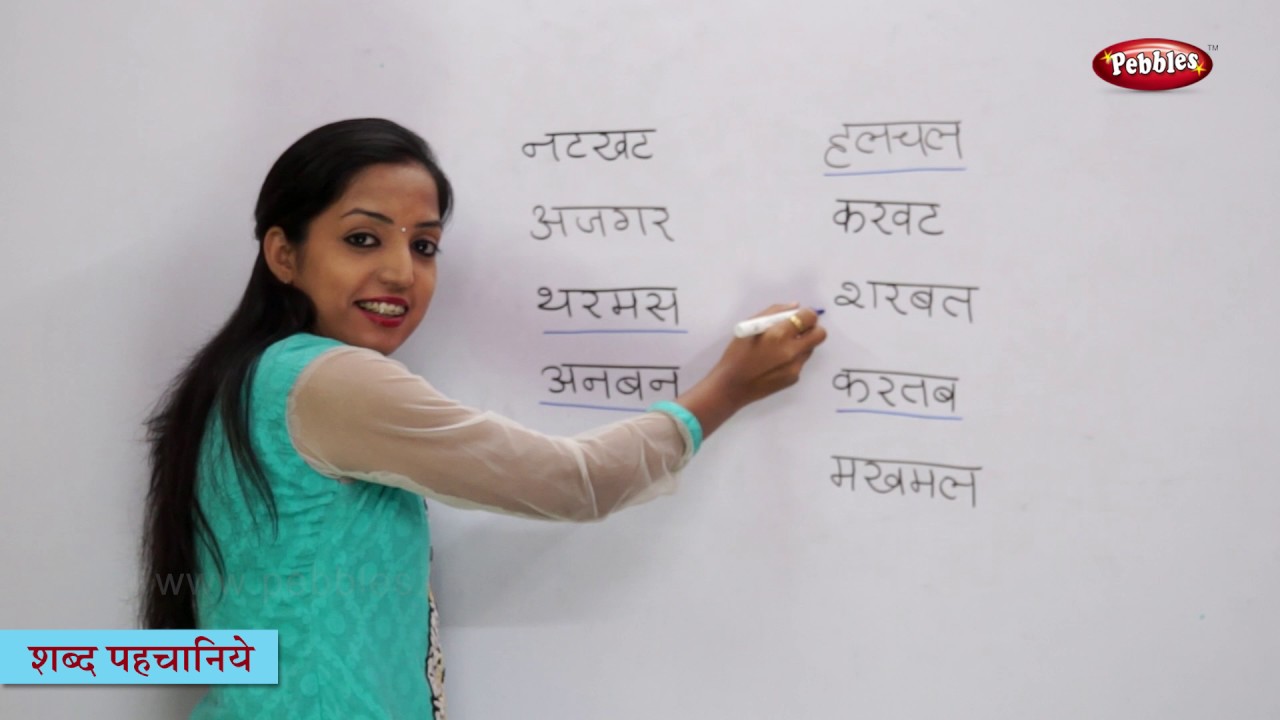 Pebbles™
नटखट
अजगर
थरमस
अनबन
हलचल
करवट
शरबत
करतब
मखमल
www.pebbles
शब्द पहचानिये